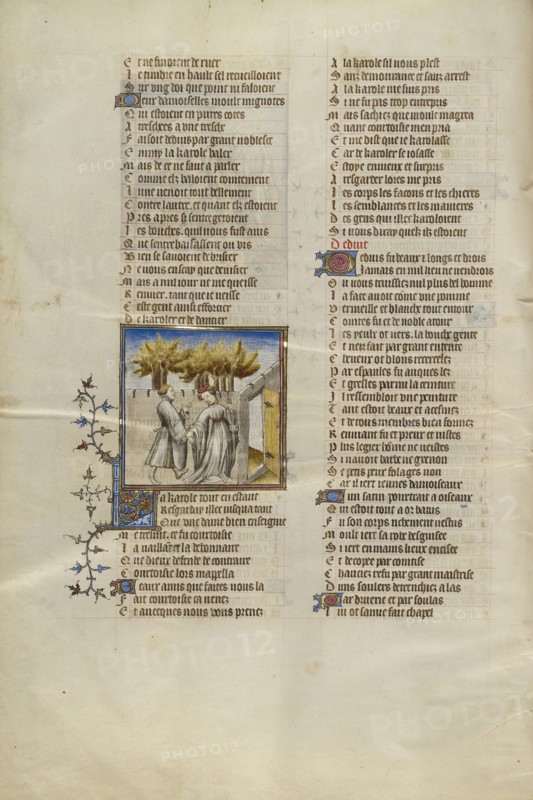 Et ne finoient de ruer
Le timbre en hault sel recueilloient
Sur ung doi que point ni failoient
Deux damoiselles moult mignotes
Qui estoient en pures cotes
A tresches a une tresche
Faisoit deduis par grant noblesce
Enmy la karole baler
Mais de ce ne faut a parler
Comme elz baloient cointement
Lune venoit tout bellement
Contre lautre et quant elz estoient
Pres apres si sentregetoient
Les bouches quil vous fust avis
Que sentrebaisassent ou vis
Bien se savoient debrisier
Ne vous en scay que devisier
Mais a nul jour ne me queisse
Remuer tant que je veisse
Ceste gent ainsi efforcier
De karoler et de dancier
La karole tout en estant
Resgarday illec jusqua tant
Que une dame bien enseignie
Me tresvit ce fu courtoisie
La vaillant et la debonnaire
Que dieux defende de contraire
Courtoisie lors mapella
Beaux amis que faites vous la
Fait courtoisie ca venez
Et avecques nous vous prenez
A la karole sil vous plest
Sanz demourance et sanz arrest
A la karole me suis pris
Si ne fu pas trop entrepris
Mais sachiez que moult magrea
Quant courtoisie men pria
Et me dist que je karolasse
Car de karoler se josasse
Estoye envieux et surpris
A resgarder lors me pris
Les corps les facons et les chieres
Les semblances et les manieres
Des gens qui illec karoloient
Si vous diray quelz ilz estoient
Deduit
Deduis fu beaux et longs et drois
Jamais en nul lieu ne vendrois
Ou vous truissiez nul plus bel homme
La face avoit come une pomme
Vermeille et blanche tout entour
Cointes fu et de noble atour
Les yeulx ot vers la bouche gente
Et le nez fait par grant entente
Cheveux ot blons recercelez
Par espaules fu auques lez
Et gresles parmi la ceinture
Il ressembloit une peinture
Tant estoit beaux et acesmez
Et de tous membres bien formez
Remuant fu et preux et vistes
Plus legier home ne veistes
Si navoit barbe ne grenon
Se petis peux folages non
Car il ert jeunes damoiseaux
Dun satin pourtrait a oiseaux
Qui estoit tout a or batus
Fu son corps richement vestus
Moult iert sa robe desguisee
Si iert en mains lieux encisee
Et decopee par cointise
Chauciez refu par grant maistrise
Duns soulers detrenchiez a las
Par druerie et par soulas
Li ot samie fait chapel